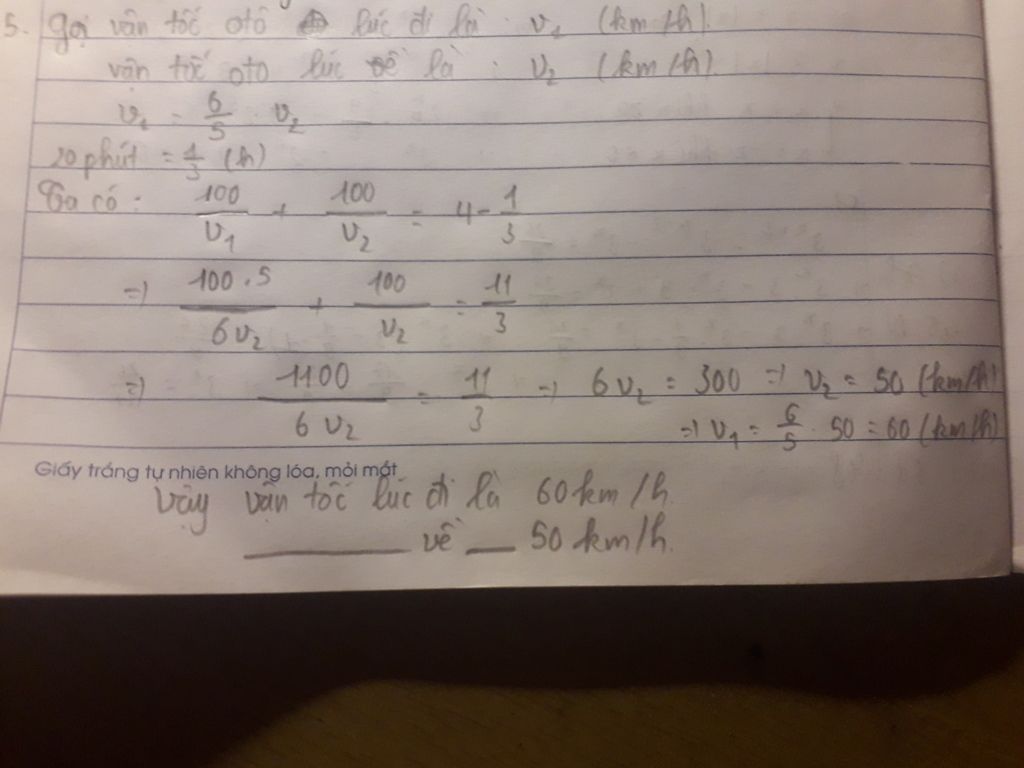 5. Gọi vận tốc otô lúc đi là : v₁ (km/h).
vận tốc oto lúc về là : v₂ (km/h).
v₁ = 6/5 . v₂
20 phút = 1/3 (h)
Ta có : 100/v₁ + 100/v₂ = 4 - 1/3
=> 100.5/6v₂ + 100/v₂ = 11/3
=> 1100/6v₂ = 11/3 => 6v₂ = 300 => v₂ = 50 (km/h)
=> v₁ = 6/5 . 50 = 60 (km/h)
Giấy trắng tự nhiên không lóa, mỏi mắt
Vậy vận tốc lúc đi là 60 km/h.
_______ về __ 50 km/h.